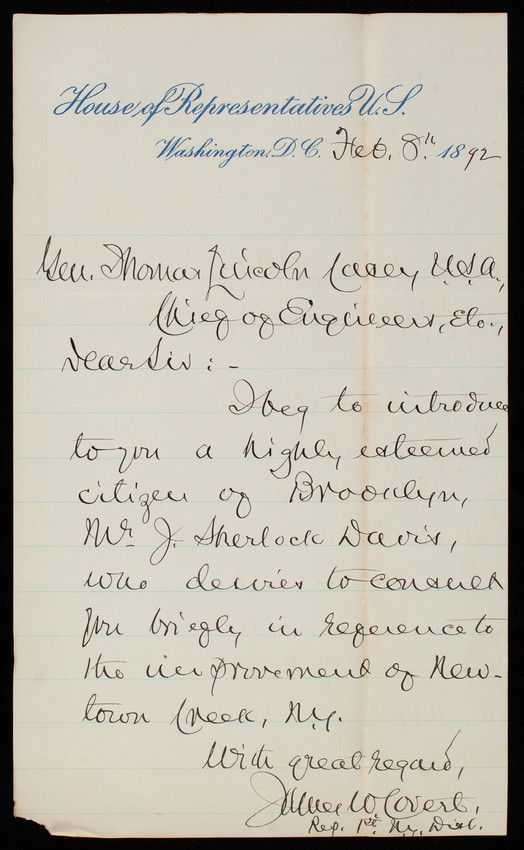 House of Representatives U.S.
Washington, D.C. Feb. 8th. 1892
Gen. Thomas Lincoln Casey, U.S.A.,
Chief of Engineers, Etc.,
Dear Sir: -
I beg to introduce
to you a highly esteemed
citizen of Brooklyn,
Mr. J. Sherlock Davis,
who desires to consult
you briefly in reference to
the improvement of New-
town Creek, N.Y.
With great regard,
James W. Covert,
Rep. 1st. N.Y. Dist.